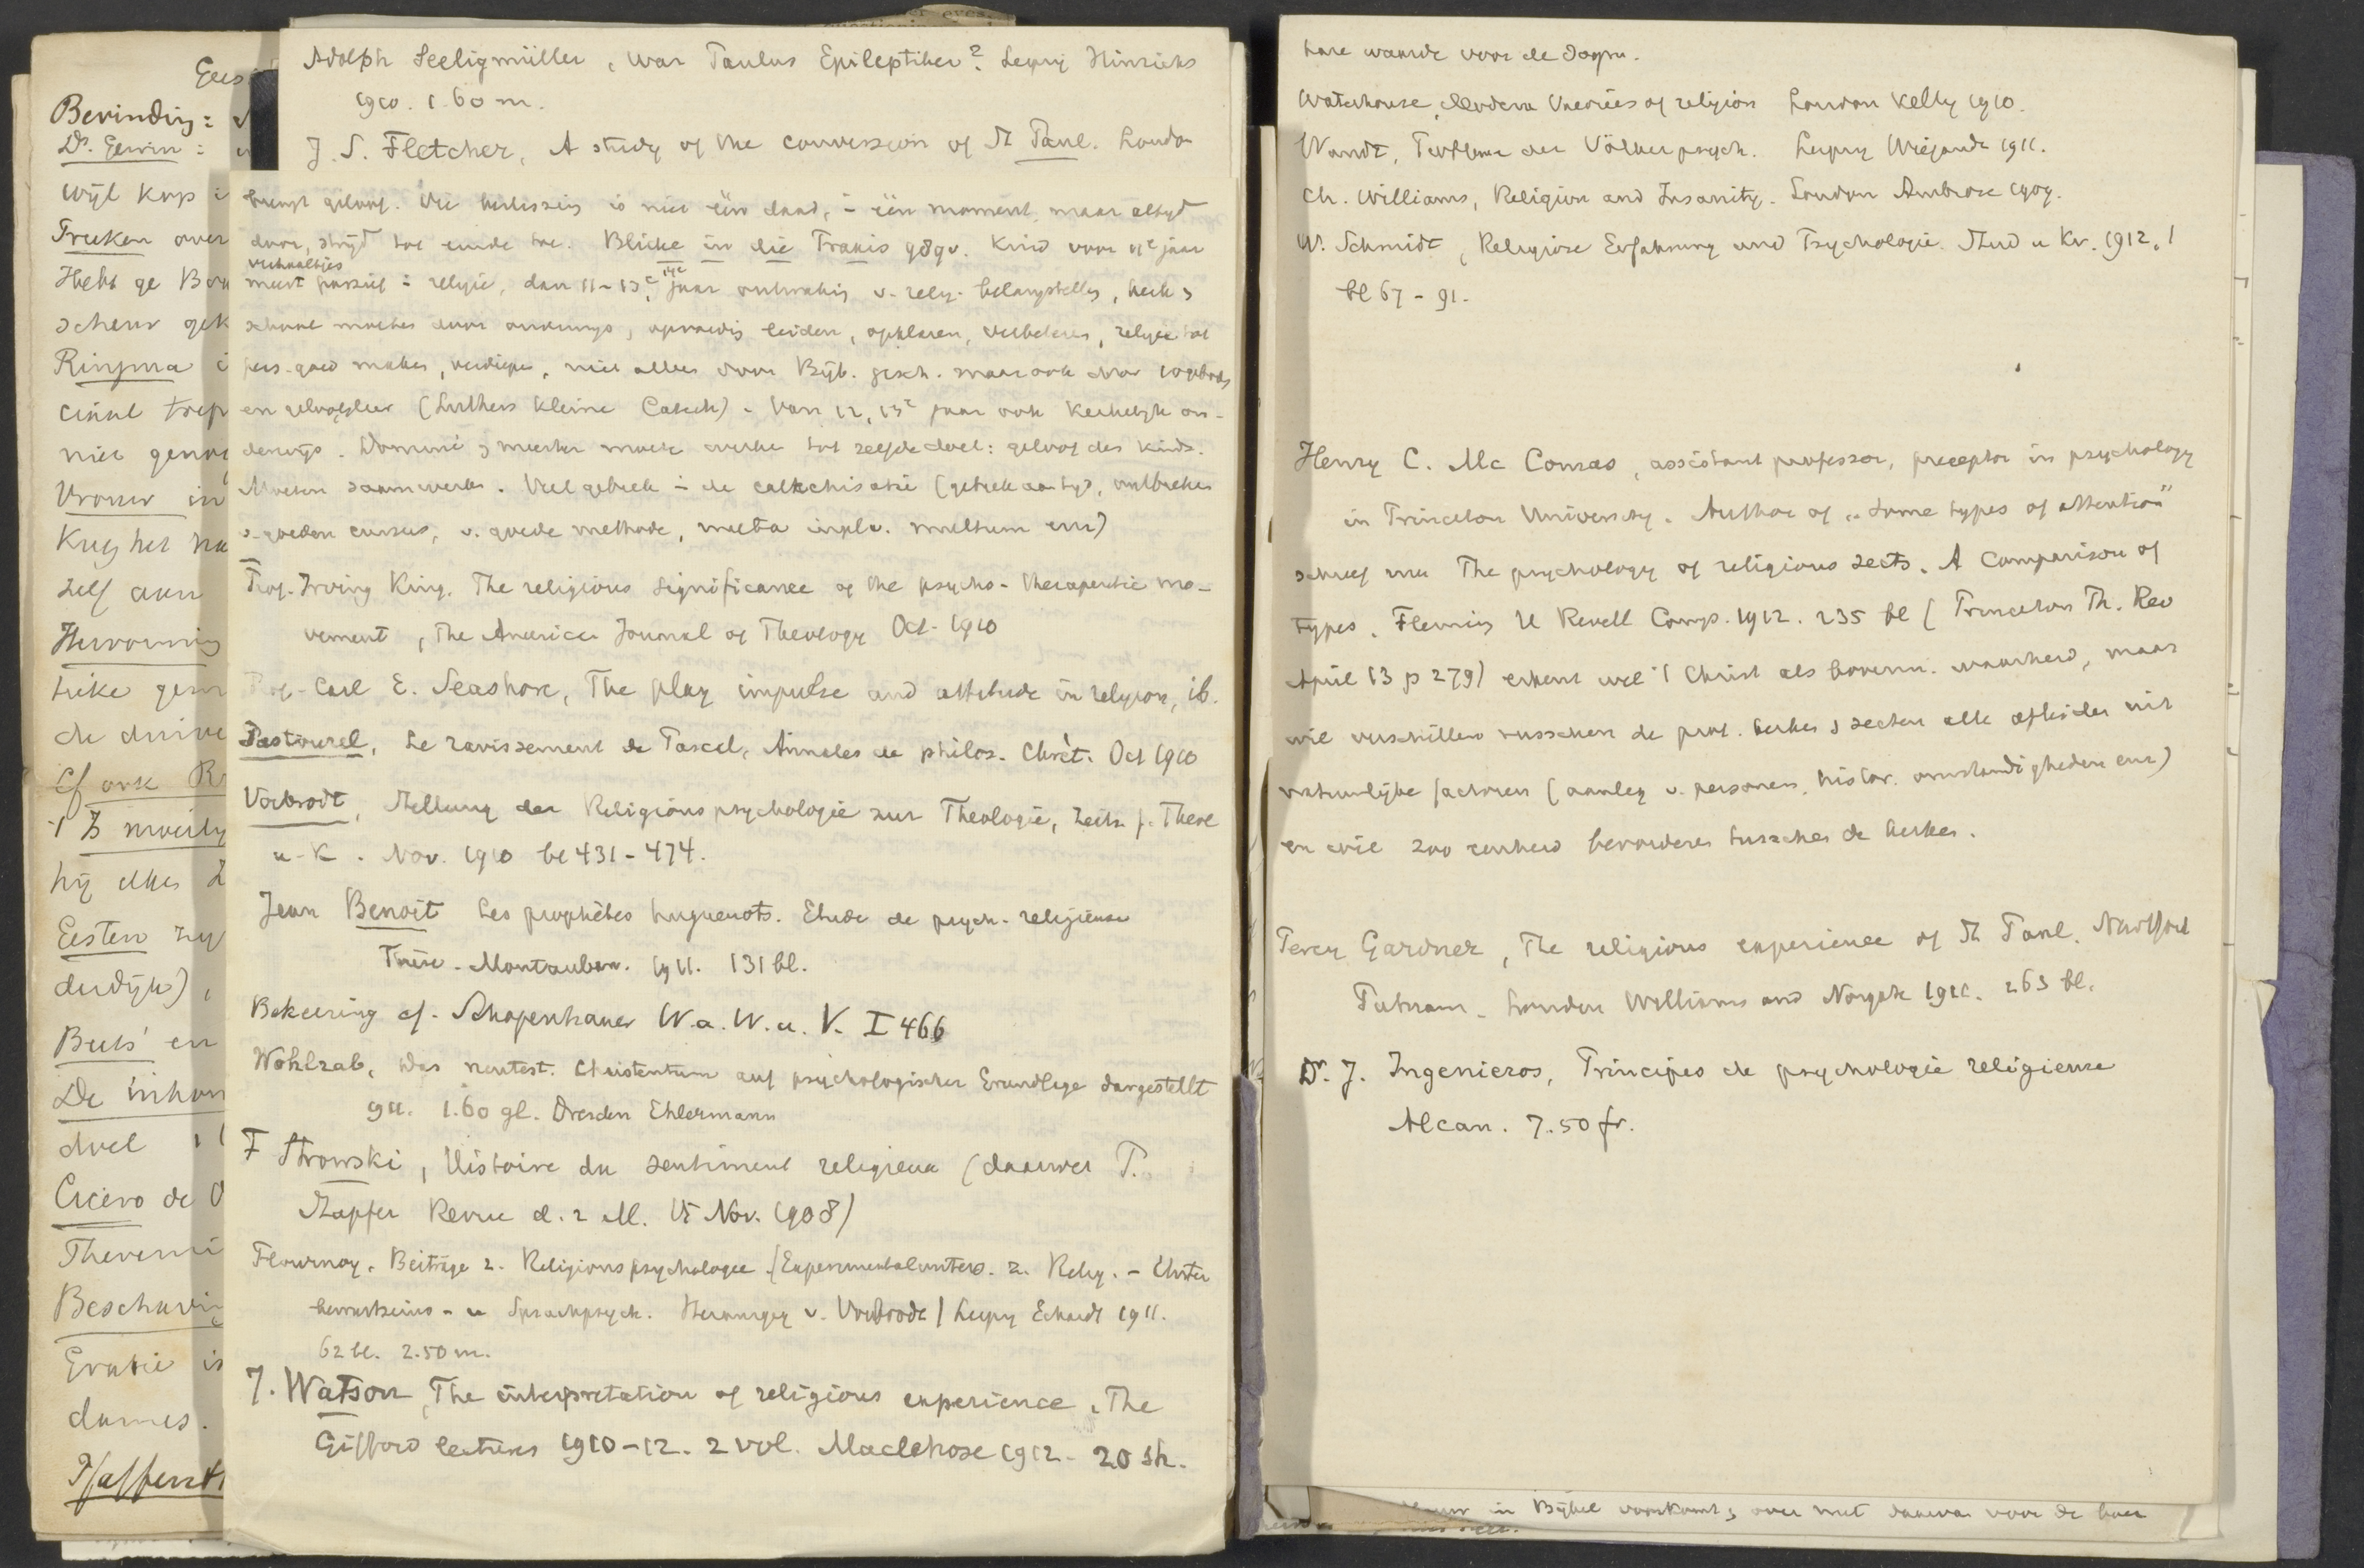 Gees
Bevinding:
Ds. Gerrin:
Wijl Kop
Treken over
Hebt ge
scheur gek
Ringma
niet genoe
Vrouw in
Krijg het
zelf aan
de drive
Cf ook
hij elken
Eesten zij
derdijk),
Beets' en
De inhou
doel
Cicero de
Theremi
Beschavin
Gratie is
dames.
Adolph Seeligmüller, War Paulus Epileptiker? Leipzig Hinrichs
1910. 1.60 m.
J. S. Fletcher, A study of the conversion of St Paul. London
geloof. Die beslissing is niet één daad, in één moment, maar altijd
door, strijd tot einde toe. Blicke in die Praxis 9890. Kind voor 11e jaar
verhaaltjes
meest passief in religie, dan 11-13e, 14e jaar ontwaking v. relig. belangstelling, kerk en
school moeten door onderwijs, opvoeding leiden, opklaren, verbeteren, religie tot
pers. goed maken, verdiepen, niet alleen door Bijb. gesch. maar ook door 10 geboden
en geloofsleer (Luthers kleine Catech). Van 12, 13e jaar ook kerkelijk on-
derwijs. Dominé en meester moeten werken tot zelfde doel: geloof des kinds.
Moeten saamwerken. Veel gebrek in de catechisatie (gebrek aan tijd, ontbreken
v. goeden cursus, v. goede methode, multa in pl. v. multum enz)
Prof. Irving King. The religious significance of the psycho-therapeutic mo-
vement, The American Journal of Theology Oct. 1910
Prof. Carl E. Seashore, The play impulse and attitude in religion, ib.
Pastourel, Le ravissement de Pascal, Annales de philos. Chrét. Oct 1910
Vorbrodt, Stellung der Religionspsychologie zur Theologie, Zeits f. Theol
u. K. Nov. 1910 bl 431-474.
Jean Benoit Les prophètes huguenots. Etude de psych. religieuse
Thèse. Montauban. 1911. 131 bl.
Bekeering cf. Schopenhauer W. a. W. u. V. I 466
Wohlrab, Das neutest. Christentum auf psychologischer Grundlage dargestellt
911. 1.60 gl. Dresden Ehlermann
F Strowski, Histoire du sentiment religieux (daarover P.
Stapfer Revue d. 2 M. 15 Nov. 1908)
Flournoy, Beiträge z. Religionspsychologie (Experimentalunters. z. Relig. - Unter
bewustseins- u Sprachpsych. Herausgeg v. Vorbrodt) Leipzig Eckardt 1911.
62 bl. 2.50 m.
J. Watson, The interpretation of religious experience, The
Gifford lectures 1910-12. 2 vol. Maclehose 1912. 20 sh.
hare waarde voor de dogm.
Waterhouse, Modern theories of religion London Kelly 1910.
Wundt, Probleme der Völkerpsych. Leipzig Wiegandt 1911.
Ch. Williams, Religion and Insanity. London Ambrose 1909.
W. Schmidt, Religiöse Erfahrung und Psychologie. Stud u Kr. 1912, 1
bl 67-91.
Henry C. Mc Comas, assistant professor, preceptor in psychology
in Princeton University. Author of „Some types of attention"
schreef nu The psychology of religious sects. A Comparison of
types. Fleming H Revell Comp. 1912. 235 bl (Princeton Th. Rev
April 13 p 279) erkent wel i/ Christ als bovenn. waarheid, maar
wil verschillen tusschen de prot. kerken en secten alle afleiden uit
natuurlijke factoren (aanleg v. personen, histor. omstandigheden enz)
en wil zoo eenheid bevorderen tusschen de kerken.
Percy Gardner, The religious experience of St Paul.
Putnam. London Williams and Norgate 1911. 263 bl.
Dr. J. Ingenieros, Principes de psychologie religieuse
Alcan. 7.50 fr.
in Bijbel voorkomt, over met daarvan voor de